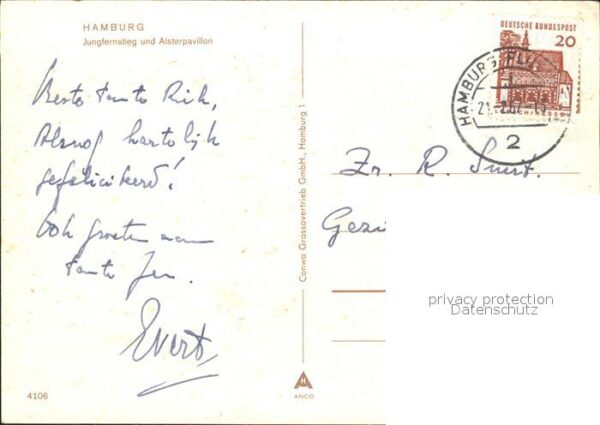 HAMBURG
Jungfernstieg und Alsterpavillon
Beste Tante Riek,
Alsnog hartelijk
gefeliciteerd!
Ook groeten aan
Tante Jen.
Evert
4106
Conwa Grossovertrieb GmbH., Hamburg 1
ANCO
DEUTSCHE BUNDESPOST
20
HAMBURG FLU
2
Zr. R. Smit.
privacy protection
Datenschutz